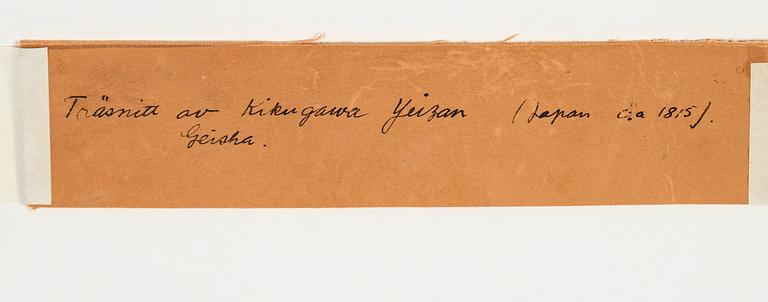 Träsnitt av Kikugawa Yeizan (Japan c:a 1815).
Geisha.